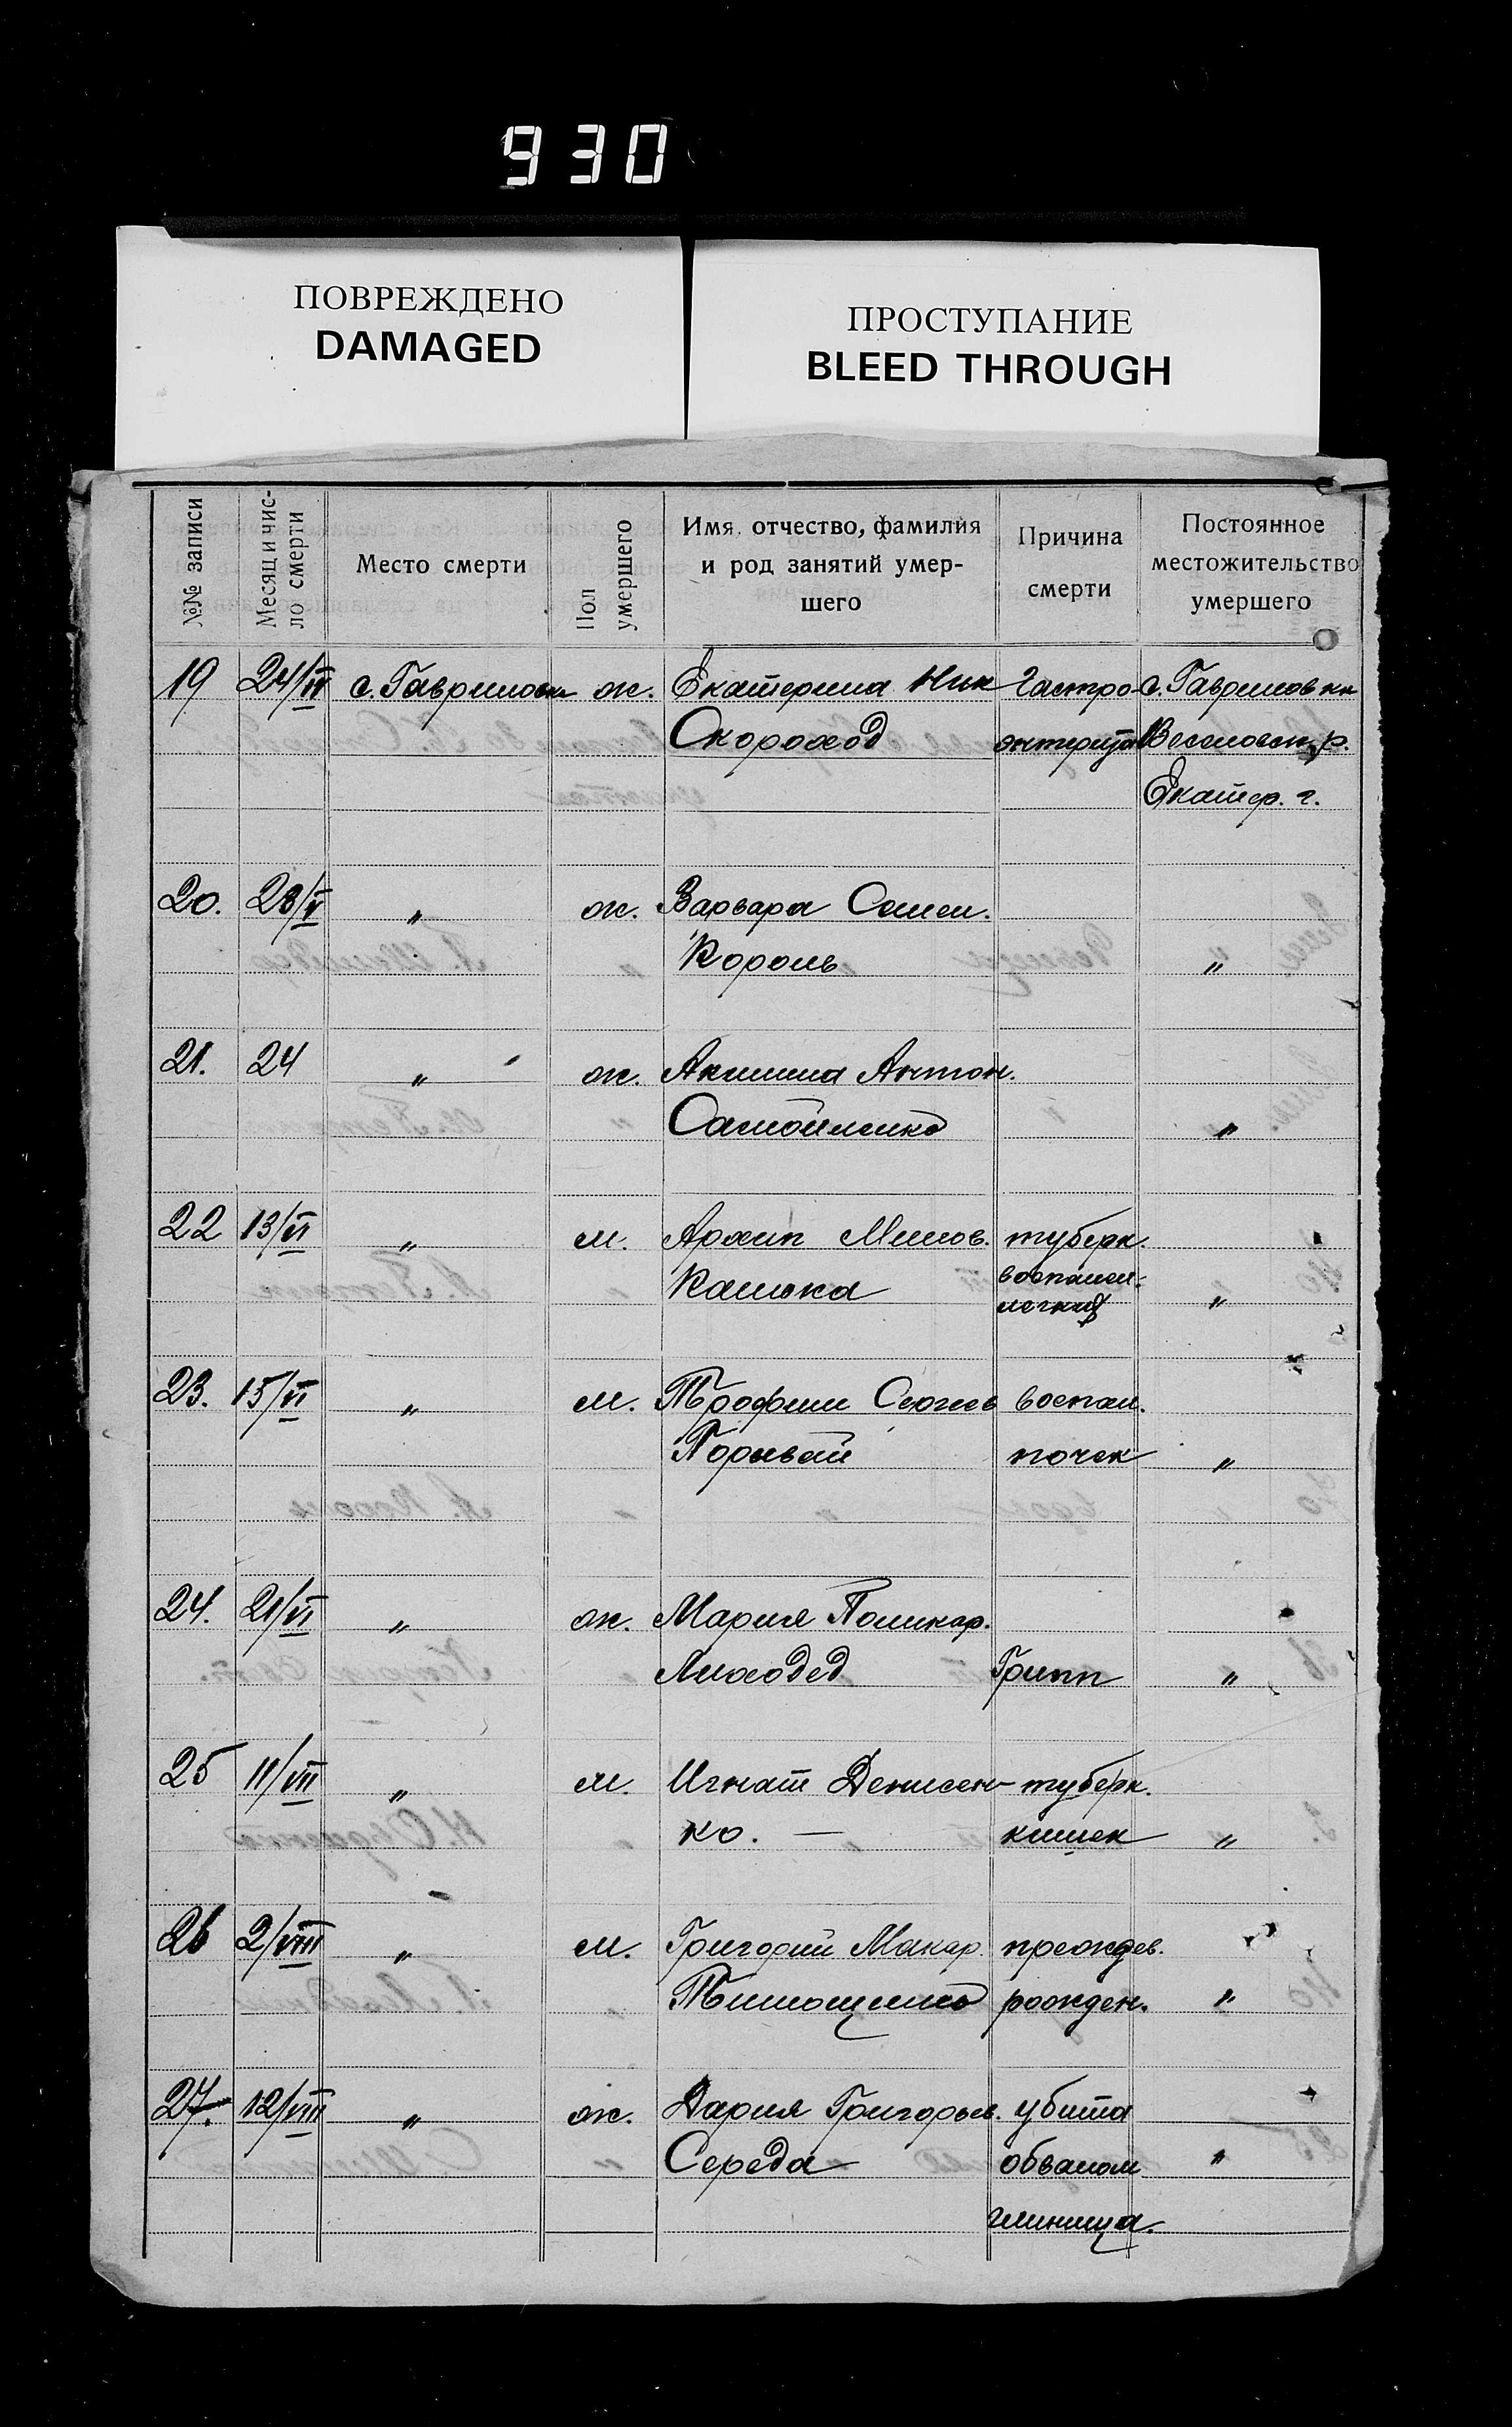 930
ПОВРЕЖДЕНО
DAMAGED
ПРОСТУПАНИЕ
BLEED THROUGH
№№ записи
Месяц и чис-
ло смерти
Место смерти
Пол
умершего
Имя, отчество, фамилия
и род занятий умер-
шего
Причина
смерти
Постоянное
местожительство
умершего
19 24/IV с. Гавриловка ж. Екатерина Ник Гастро- с. Гавриловки
Скороход энтерит Веселовск. р.
Екатер. г.
20. 23/V „ ж. Варвара Семен.
Король „
21. 24 „ ж. Акилина Антон.
Самойленко „
22 13/VI „ м. Архип Милов. туберк.
Калюка воспален. „
легких
23. 15/VI „ м. Трофим Сергеев воспал.
Порывай почек „
24. 21/VI „ ж. Мария Поликар.
Лиходед Грипп „
25 11/VII „ м. Игнат Денисен- туберк.
ко. — кишек „
26 2/VIII „ м. Григорий Макар. преждев.
Тимощенко рожден. „
27. 12/VIII „ ж. Дария Григорьев. убита
Середа обвалом „
глинища.